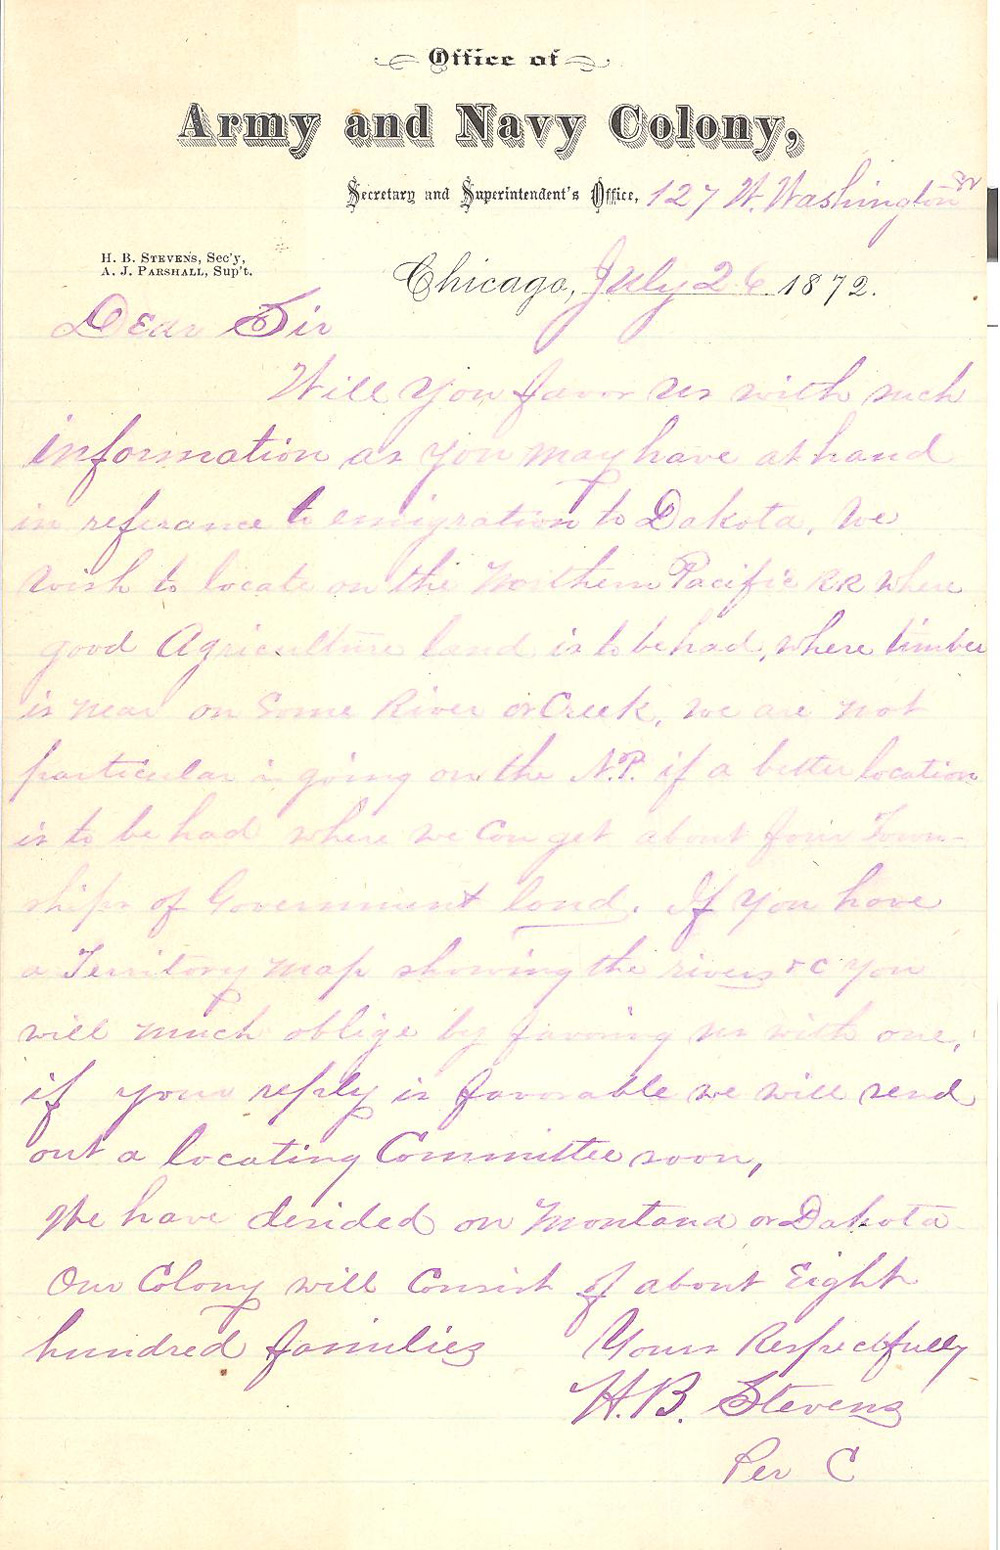 Office of
Army and Navy Colony,
Secretary and Superintendent's Office, 127 W. Washington
H. B. STEVENS, Sec'y,
A. J. PARSHALL, Sup't.
Chicago, July 26 1872.
Dear Sir
Will you favor us with such
information as you may have at hand
in referance to emigration to Dakota, We
wish to locate on the Northern Pacific RR where
good Agriculture land is to be had, where timber
is near on Some River or Creek, we are not
particular in going on the N.P. if a better location
is to be had where we can get about four Town-
ships of Government land. If you have
a Territory map showing the rivers &c you
will much oblige by favoring us with one,
if your reply is favorable we will send
out a locating Committee soon,
We have desided on Montana or Dakota
Our Colony will Consist of about Eight
hundred families
Yours Respectfully
H. B. Stevens
Per C